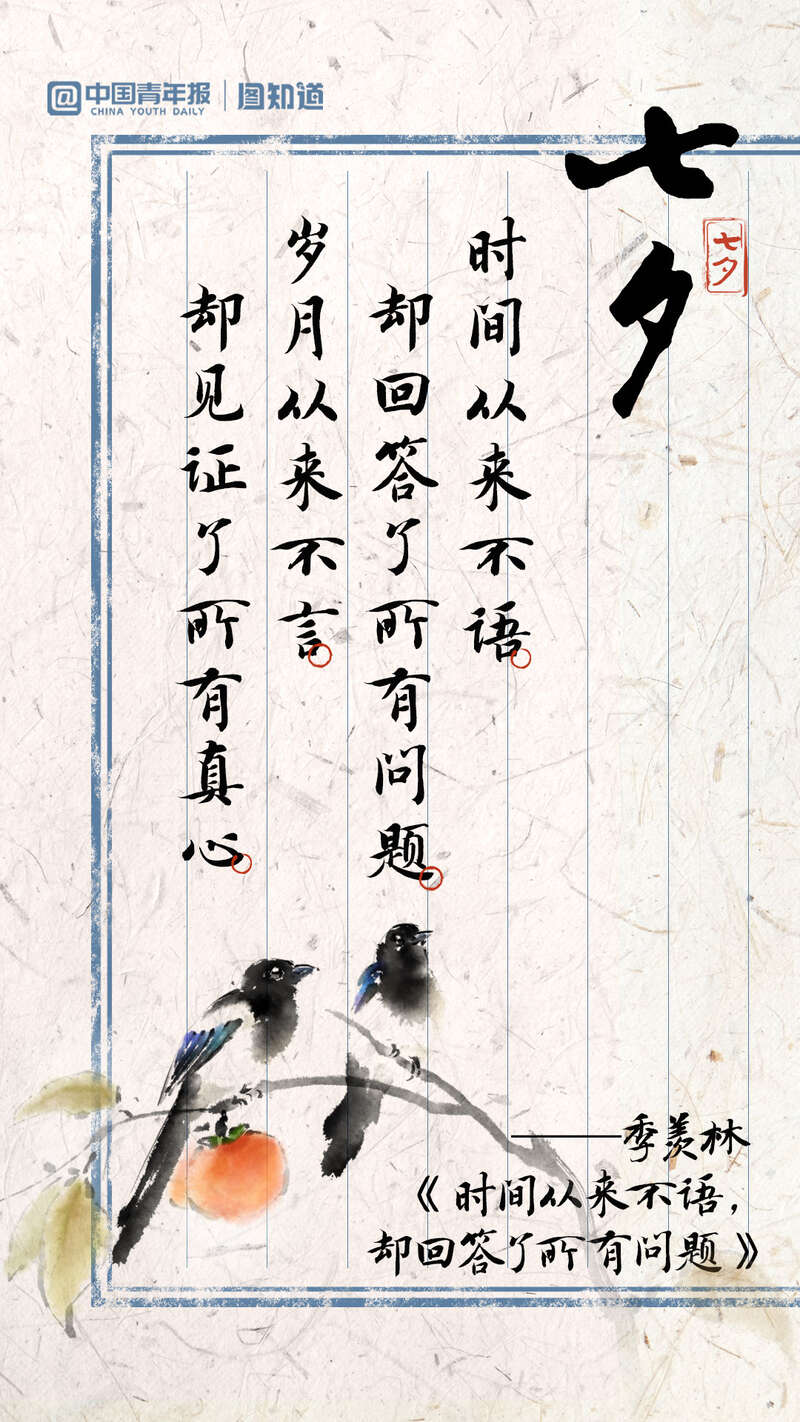 @中国青年报
CHINA YOUTH DAILY
图知道
七夕
七夕
时间从来不语。
却回答了所有问题。
岁月从来不言。
却见证了所有真心。
——季羡林
《时间从来不语，
却回答了所有问题》